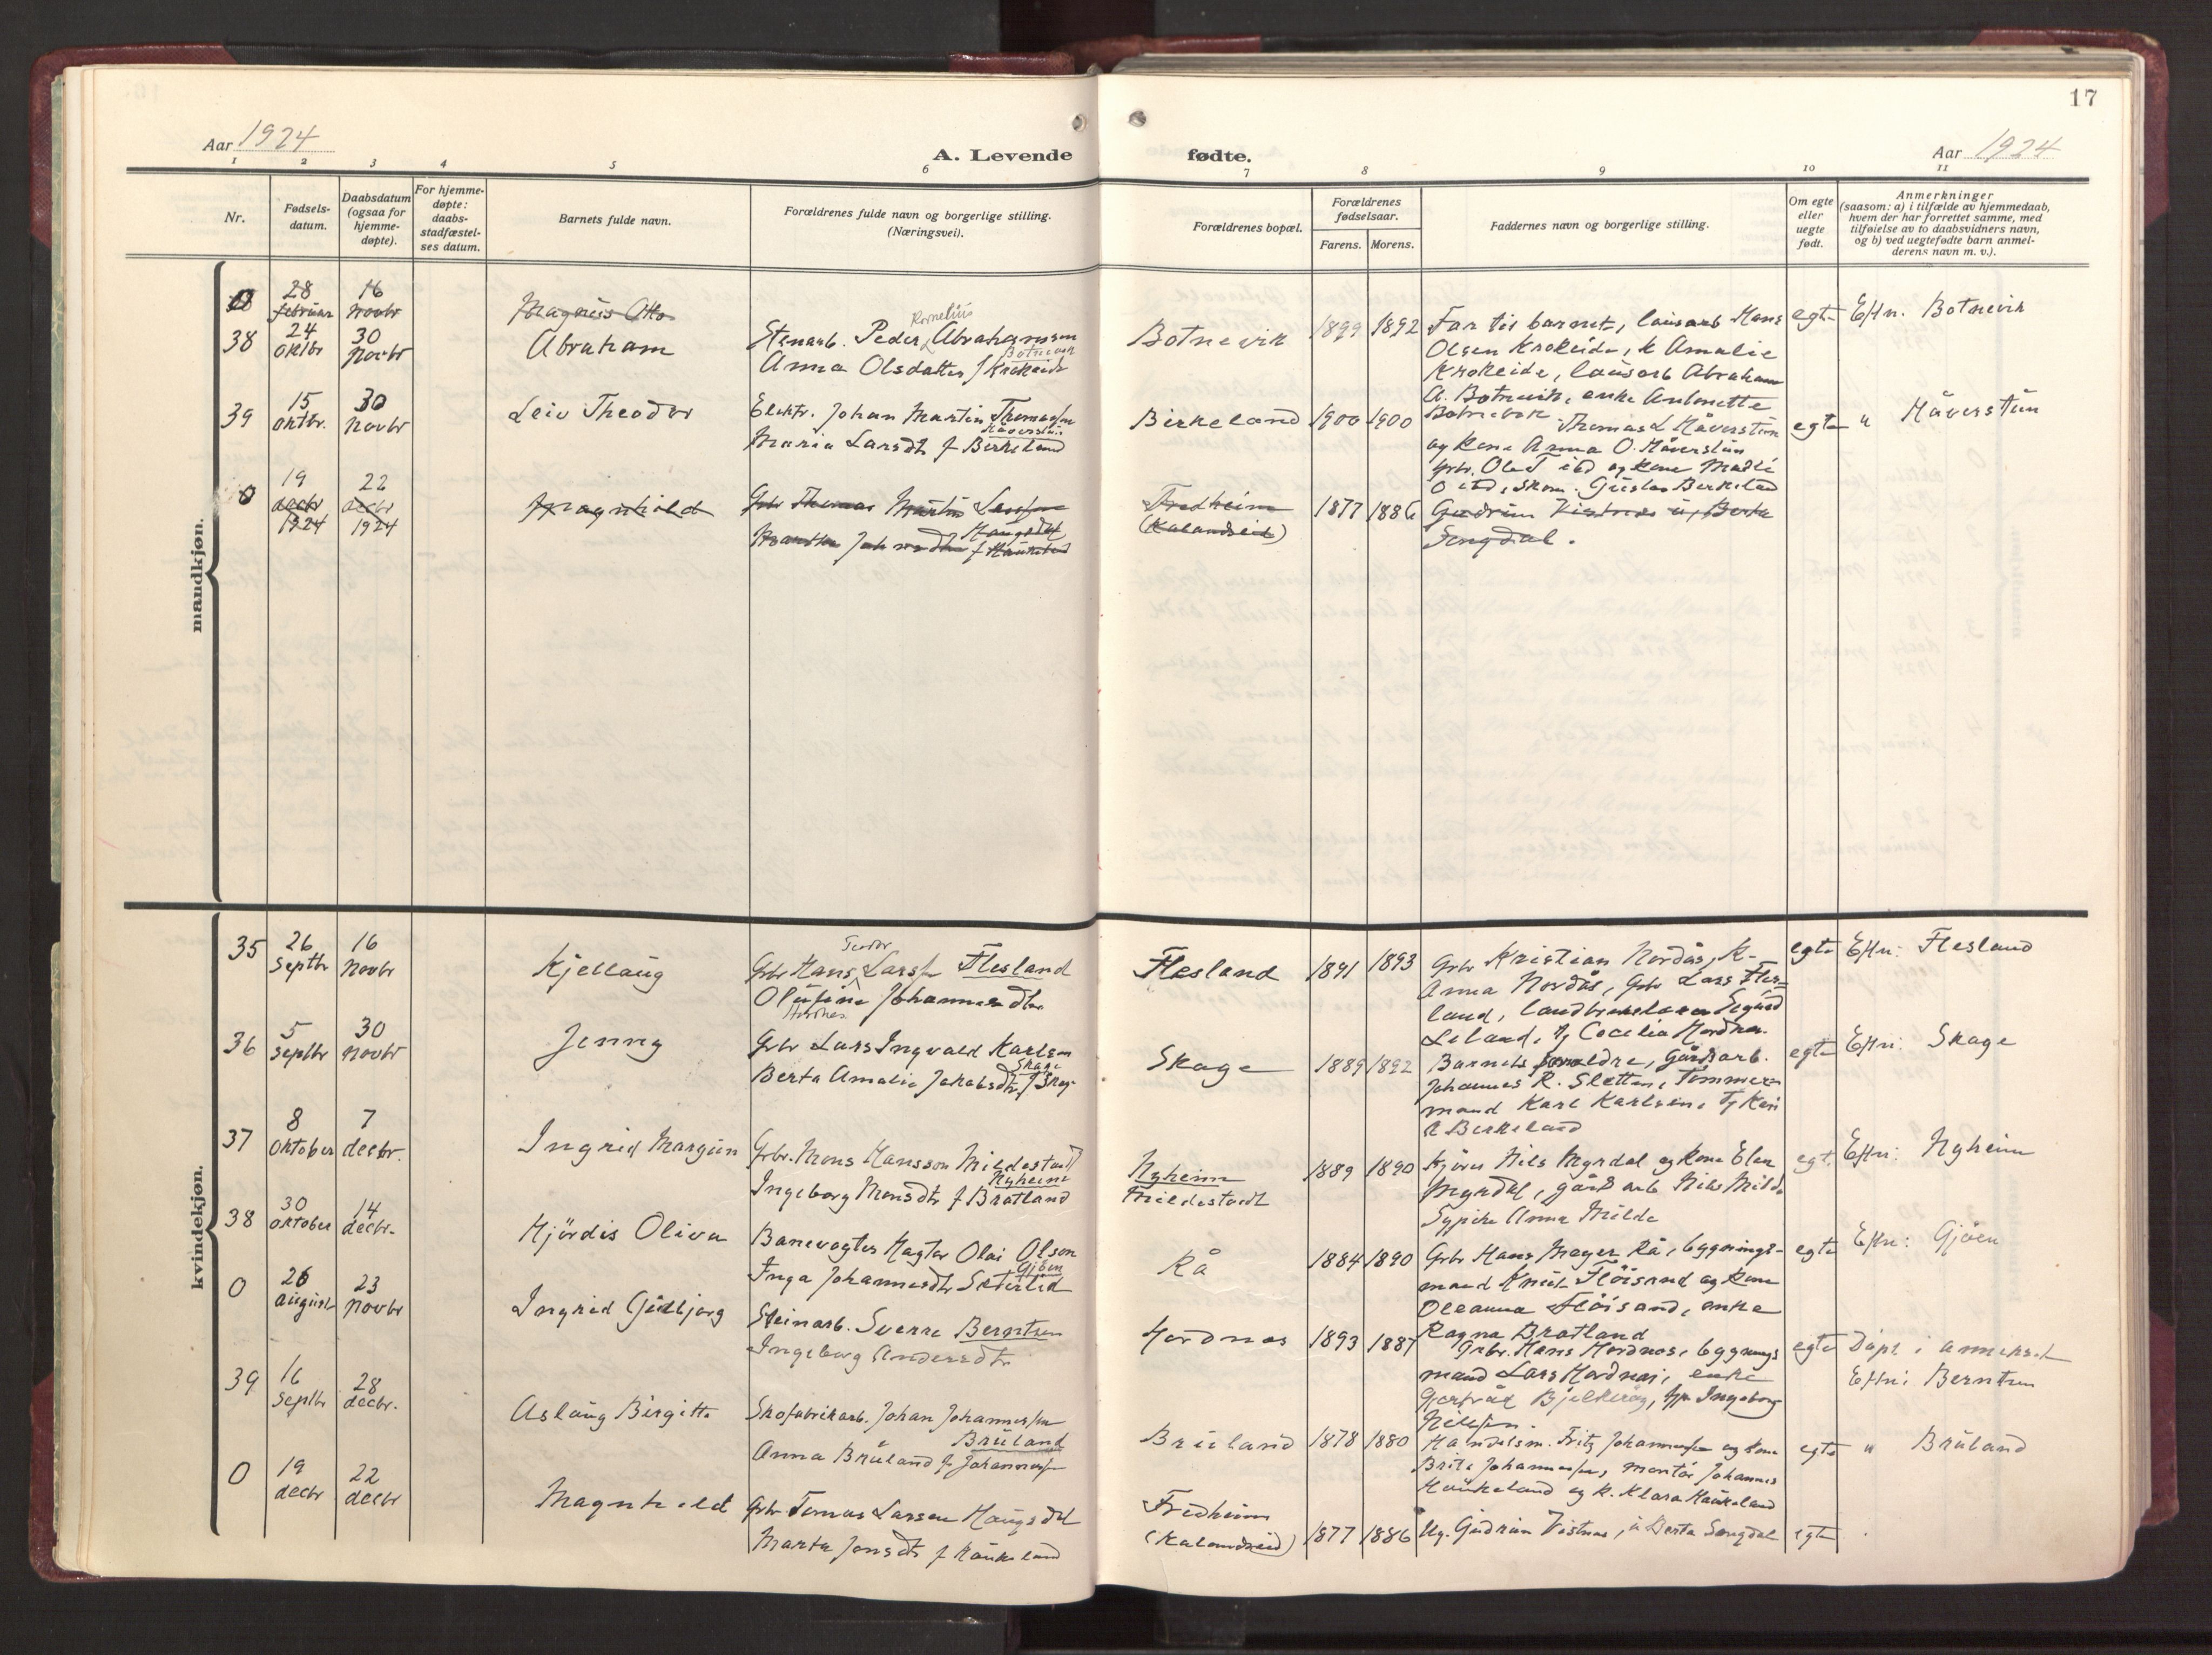 17
Aar 1924
A. Levende
fødte.
Aar 1924
1 2 3 4 5 6 7 8 9 10 11
Nr.
Fødsels-
datum.
Daabsdatum
(ogsaa for
hjemme-
døpte).
For hjemme-
døpte:
daabs-
stadfæstel-
ses datum.
Barnets fulde navn.
Forældrenes fulde navn og borgerlige stilling.
(Næringsvei).
Forældrenes bopæl.
Forældrenes
fødselsaar.
Farens. Morens.
Faddernes navn og borgerlige stilling.
Om egte
eller
uegte
født.
Anmerkninger
(saasom: a) i tilfælde av hjemmedaab,
hvem der har forrettet samme, med
tilføielse av to daabsvidners navn,
og b) ved uegtefødte barn anmel-
derens navn m. v.).
mandkjøn.
28 februar
16 Novbr
Magnus Otto
38
24 oktbr
30 Novbr
Abraham
Stenarb. Peder Kornelius Abrahamsen
Botnevik
Anna Olsdatter f Krokeide
Botnevik
1899 1892
Far til barnet, lausarb Hans
Olsen Krokeide, k Amalie
Krokeide, lausarb Abraham
A. Botnevik, enke Antonette
Botnevik
egte
Eftn. Botnevik
39
15 oktbr.
30 Novbr
Leiv Theodor
Elektr. Johan Martin Thomassen
Håverstun
Maria Larsdt f Birkeland
Birkeland
1900 1900
Thomas L Håverstun
og kone Anna O. Håverstun
Gbr. Ole T ibd og kone Madli
O ibd, skom. Gustav Birkeland
egte
" Håverstun
0
19 decbr 1924
22 decbr 1924
Magnhild
Gbr Thomas Martin Larssen
Haugsdal
f Haukeland
Fredheim
(Kalandseid)
1877 1886
Gudrun Vistnes u, Berta
Songdal.
kvindekjøn.
35
26 Septbr
16 Novbr
Kjellaug
Teodor
Gbr Hans Larss. Flesland
Olufine Johannesdtr
Flesland
1891 1893
Gbr Kristian Nordås, K-
Anna Nordås, Gbr Lars Fles-
land, landbrukslærer Sigurd
Leland, Tj Cecelia Hordnes.
egte
Eftn: Flesland
36
5 Septbr
30 Novbr
Jenny
Gbr Lars Ingvald Karlsen
Skage
Berta Amalie Jakobsdtr, f Skage
Skage
1889 1892
Barnets foreldre, Gårdsarb.
Johannes R. Sletten, Tømmer-
mand Karl Karlsen, Tj Kari
R Birkeland
egte
Eftn: Skage
37
8 oktober
7 decbr.
Ingrid Margun
Gbr. Mons Hansson Mildestveit
Nyheim
Ingeborg Monsdtr f Bratland
Nyheim
Mildestveit
1889 1890
Kjører Nils Myrdal og kone Elen
Myrdal, gårdsarb Nils Milde
Sypike Anna Milde
egte
Eftn: Nyheim
38
30 oktober
14 decbr.
Hjördis Oliva
Banevogter Magter Olai Olson
Gjöen
Inga Johannesdtr Seterlid
Rå
1884 1890
Gbr Hans Mayer Rå, bygnings-
mand Knut Flöisand og kone
Oleanna Flöisand, enke
Ragna Bratland
egte
Eftn: Gjöen
0
26 august
23 Novbr
Ingrid Gudbjorg
Steinarb. Sverre Berntsen
Ingeborg Andersdtr
Hordnes
1893 1887
Gbr. Hans Hordnes, bygnings
mand Lars Hordnes, enke
Gjertrud Bjelkerøy, Tj. Ingeborg
Nilssen.
egte
Døpt i annekset
Eftn: Berntsen
39
16 Septbr
28 decbr.
Aslaug Birgitte
Skofabrikarb. Johan Johannessen
Bruland
Anna Bruland f Johannessen
Bruland
1878 1880
Handelsm. Fritz Johannessen og kone
Brita Johannessen, montør Johannes
Haukeland og k. Klara Haukeland
egte
" Bruland
0
19 decbr
22 decbr
Magnhild
Gbr Tomas Larsen Haugsdal
Marta Jonsdtr f Haukeland
Fredheim
(Kalandseid)
1877 1886
Ug. Gudrun Vistnes, u Berta Songdal
egte